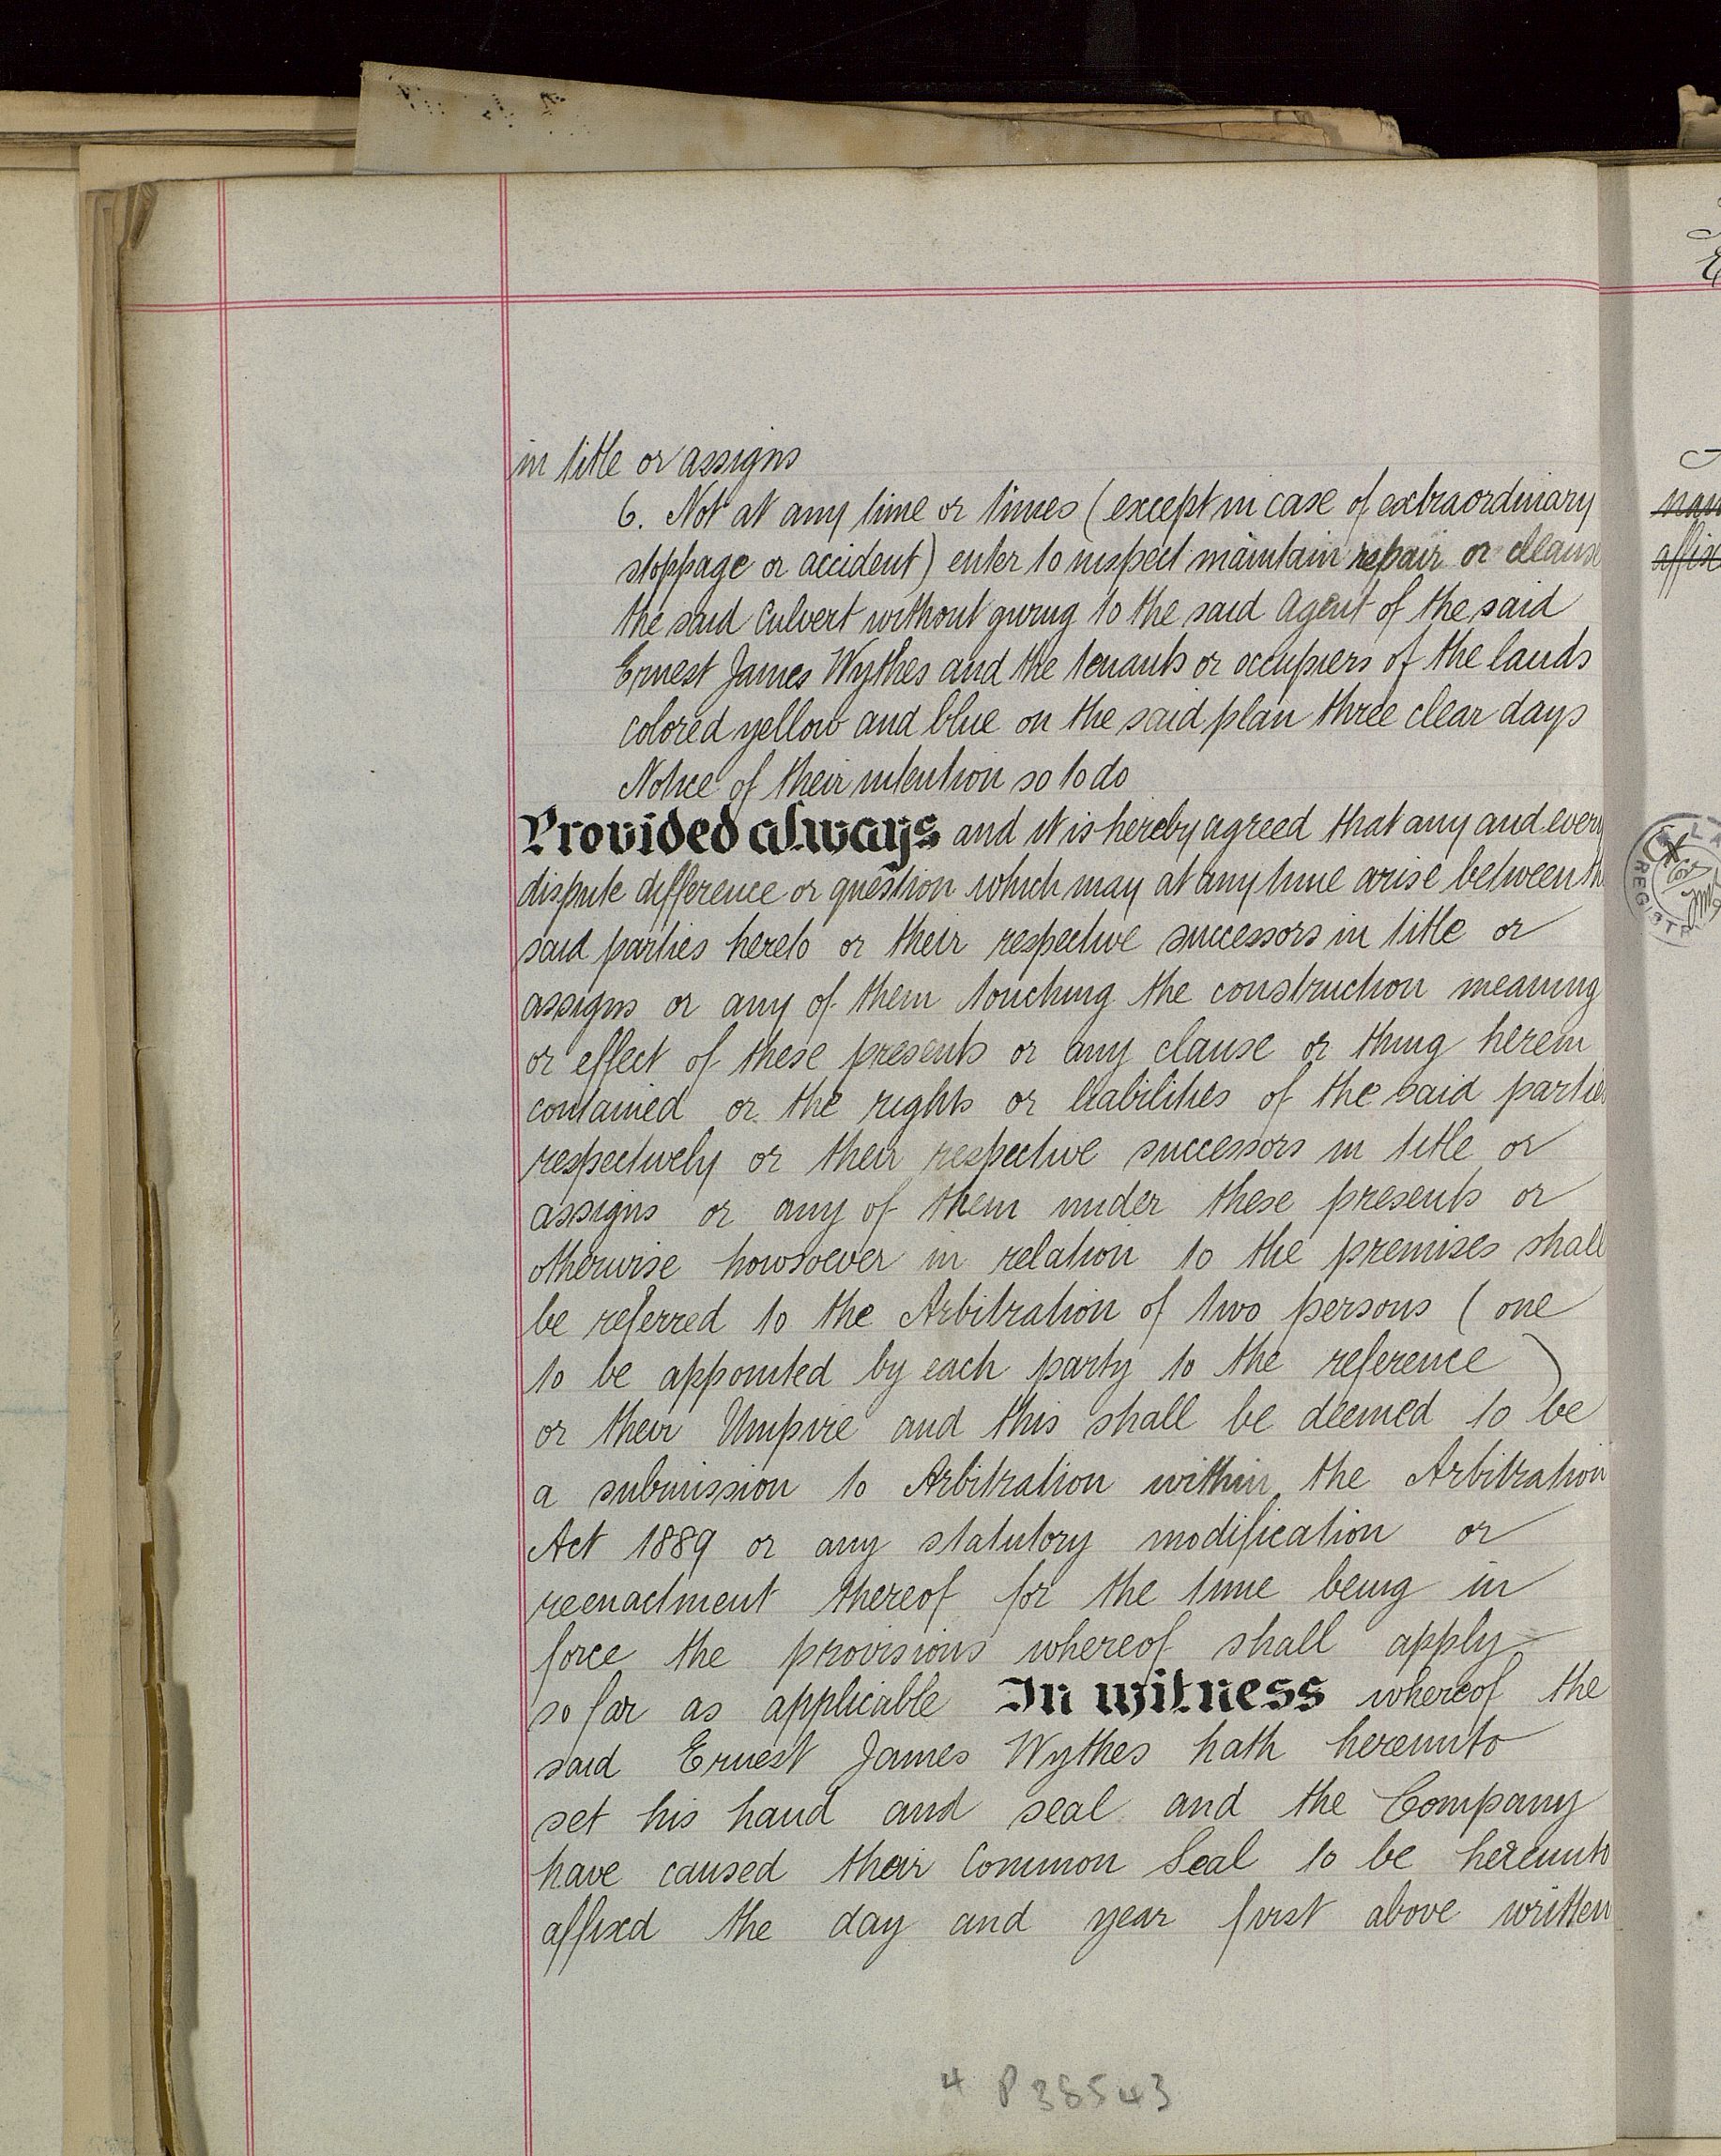 in title or assigns
6. Not at any time or times (except in case of extraordinary
stoppage or accident) enter to inspect maintain repair or cleanse
the said Culvert without giving to the said Agent of the said
Ernest James Wythes and the tenants or occupiers of the lands
colored yellow and blue on the said plan three clear days
Notice of their intention so to do
Provided always and it is hereby agreed that any and every
dispute difference or question which may at any time arise between the
said parties hereto or their respective successors in title or
assigns or any of them touching the construction meaning
or effect of these presents or any clause or thing herein
contained or the rights or liabilities of the said parties
respectively or their respective successors in title or
assigns or any of them under these presents or
otherwise howsoever in relation to the premises shall
be referred to the Arbitration of two persons (one
to be appointed by each party to the reference)
or their Umpire and this shall be deemed to be
a submission to Arbitration within the Arbitration
Act 1889 or any statutory modification or
reenactment thereof for the time being in
force the provisions whereof shall apply
so far as applicable In witness whereof the
said Ernest James Wythes hath hereunto
set his hand and seal and the Company
have caused their Common Seal to be hereunto
affixed the day and year first above written
4 P38543